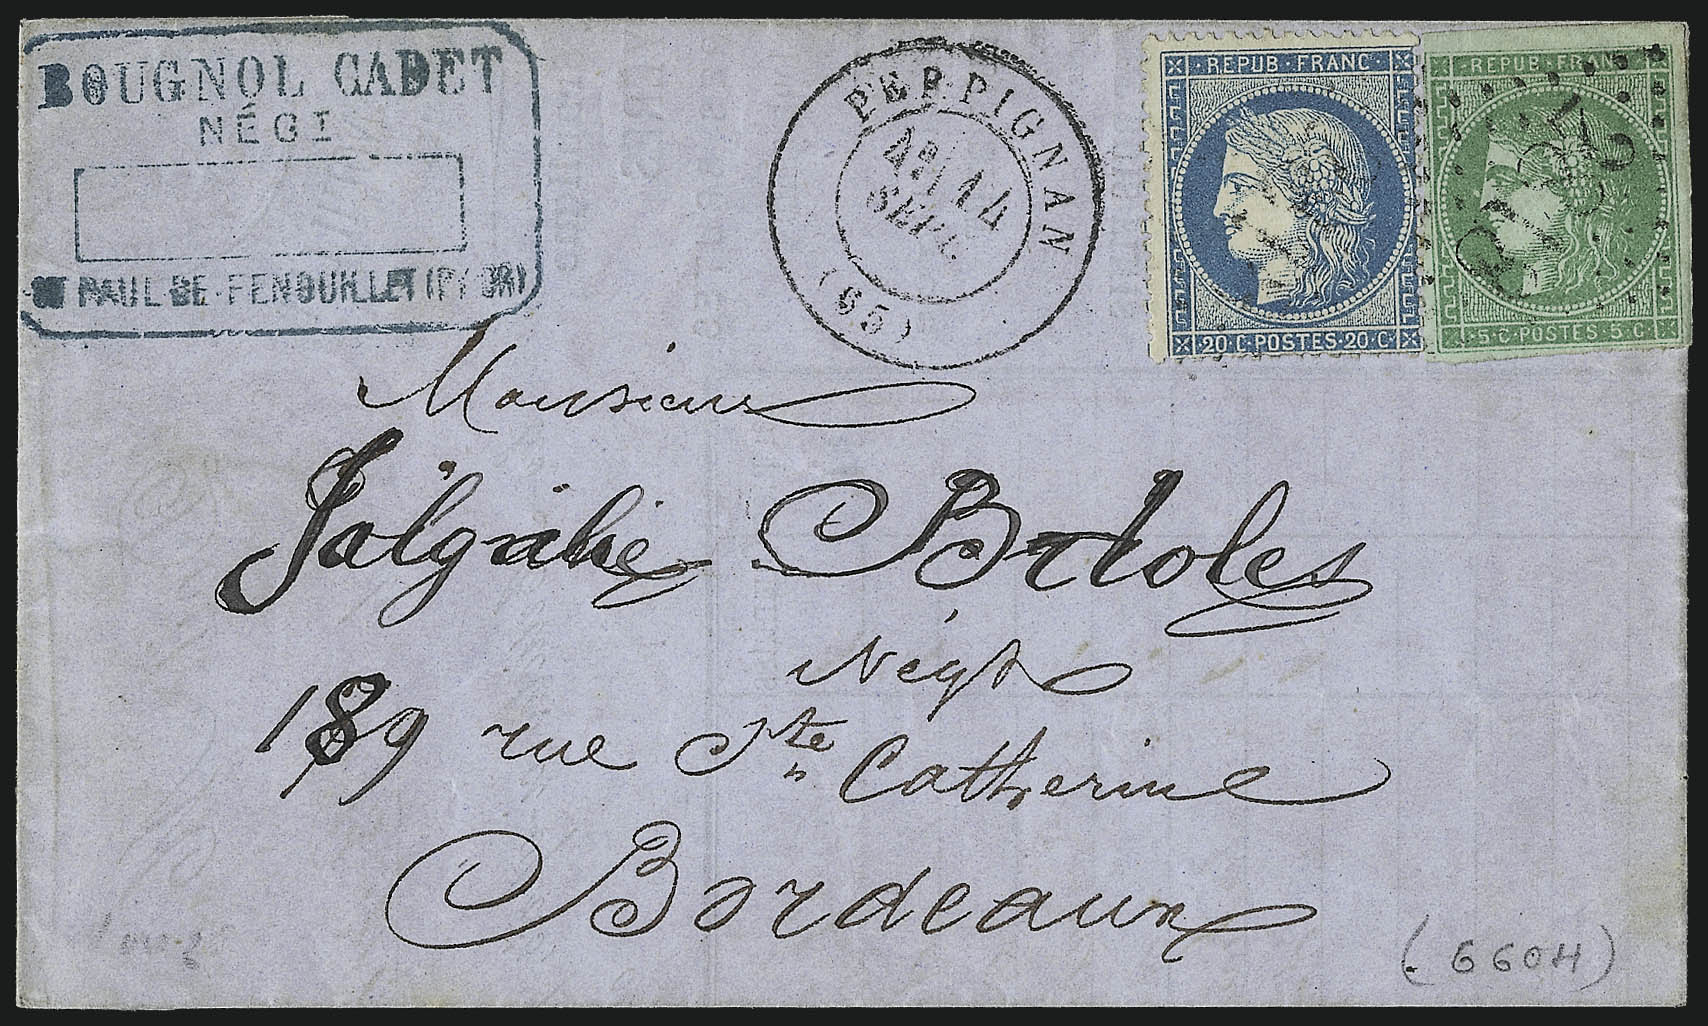 BOUGNOL CADET
NÉGT
ST PAUL-DE-FENOUILLET (P.s OR)
PERPIGNAN
14
SEPT.
(65)
REPUB·FRANC·
20·C·POSTES·20·C·
REPUB·FRANC
5·C·POSTES 5·C·
Monsieur
Négt
189 rue Ste Catherine
Bordeaux
(6604)